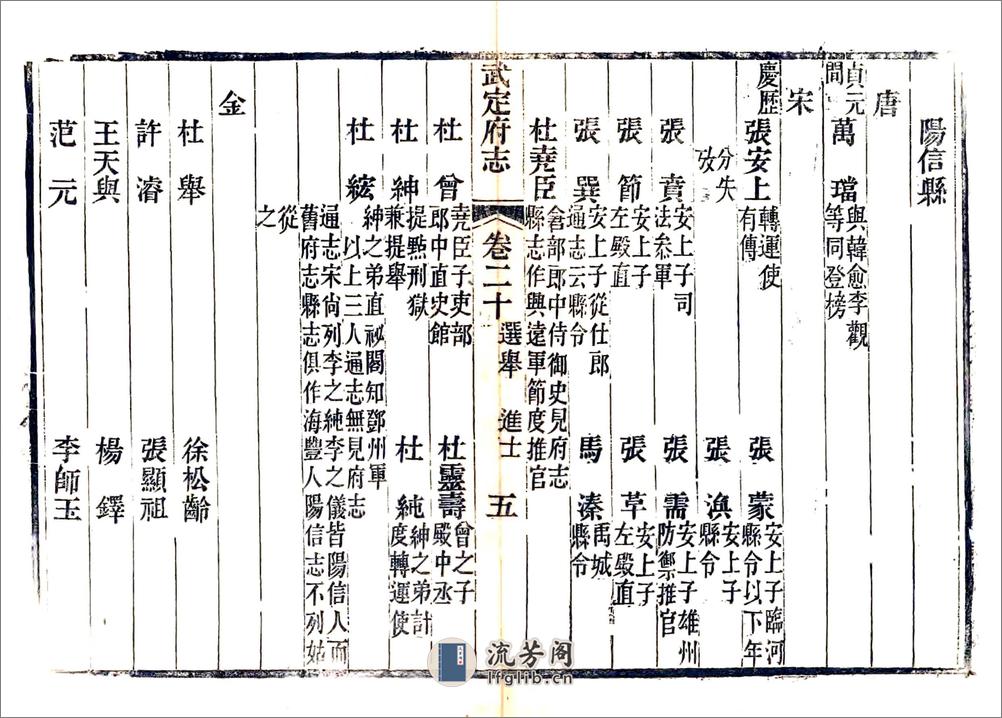 陽信縣
唐
貞元間 萬璫 與韓愈李觀等同登榜
宋
慶歷 張安上 轉運使有傳 張蒙 安上子臨河縣令以下年
分失攷 張渙 安上子縣令
張賁 安上子司法叅軍 張需 安上子雄州防禦推官
張節 安上子左殿直 張草 安上子左殿直
張巽 安上子從仕郎通志云縣令 馬溱 禹城縣令
杜堯臣 倉部郎中侍御史見府志縣志作興遠軍節度推官
武定府志 卷二十 選舉 進士 五
杜曾 堯臣子吏部郎中直史館 杜靈壽 曾之子殿中丞
杜紳 提㸃刑獄兼提舉 杜純 紳之弟計度轉運使
杜紘 紳之弟直祕閣知鄧州軍 以上三人通志無見府志
通志宋尙列李之純李之儀皆陽信人而舊府志縣志俱作海豐人陽信志不列姑
從之
金
杜舉 徐松齡
許濬 張顯祖
王天與 楊鐸
范元 李師玉
流芳阁
lfglib.cn